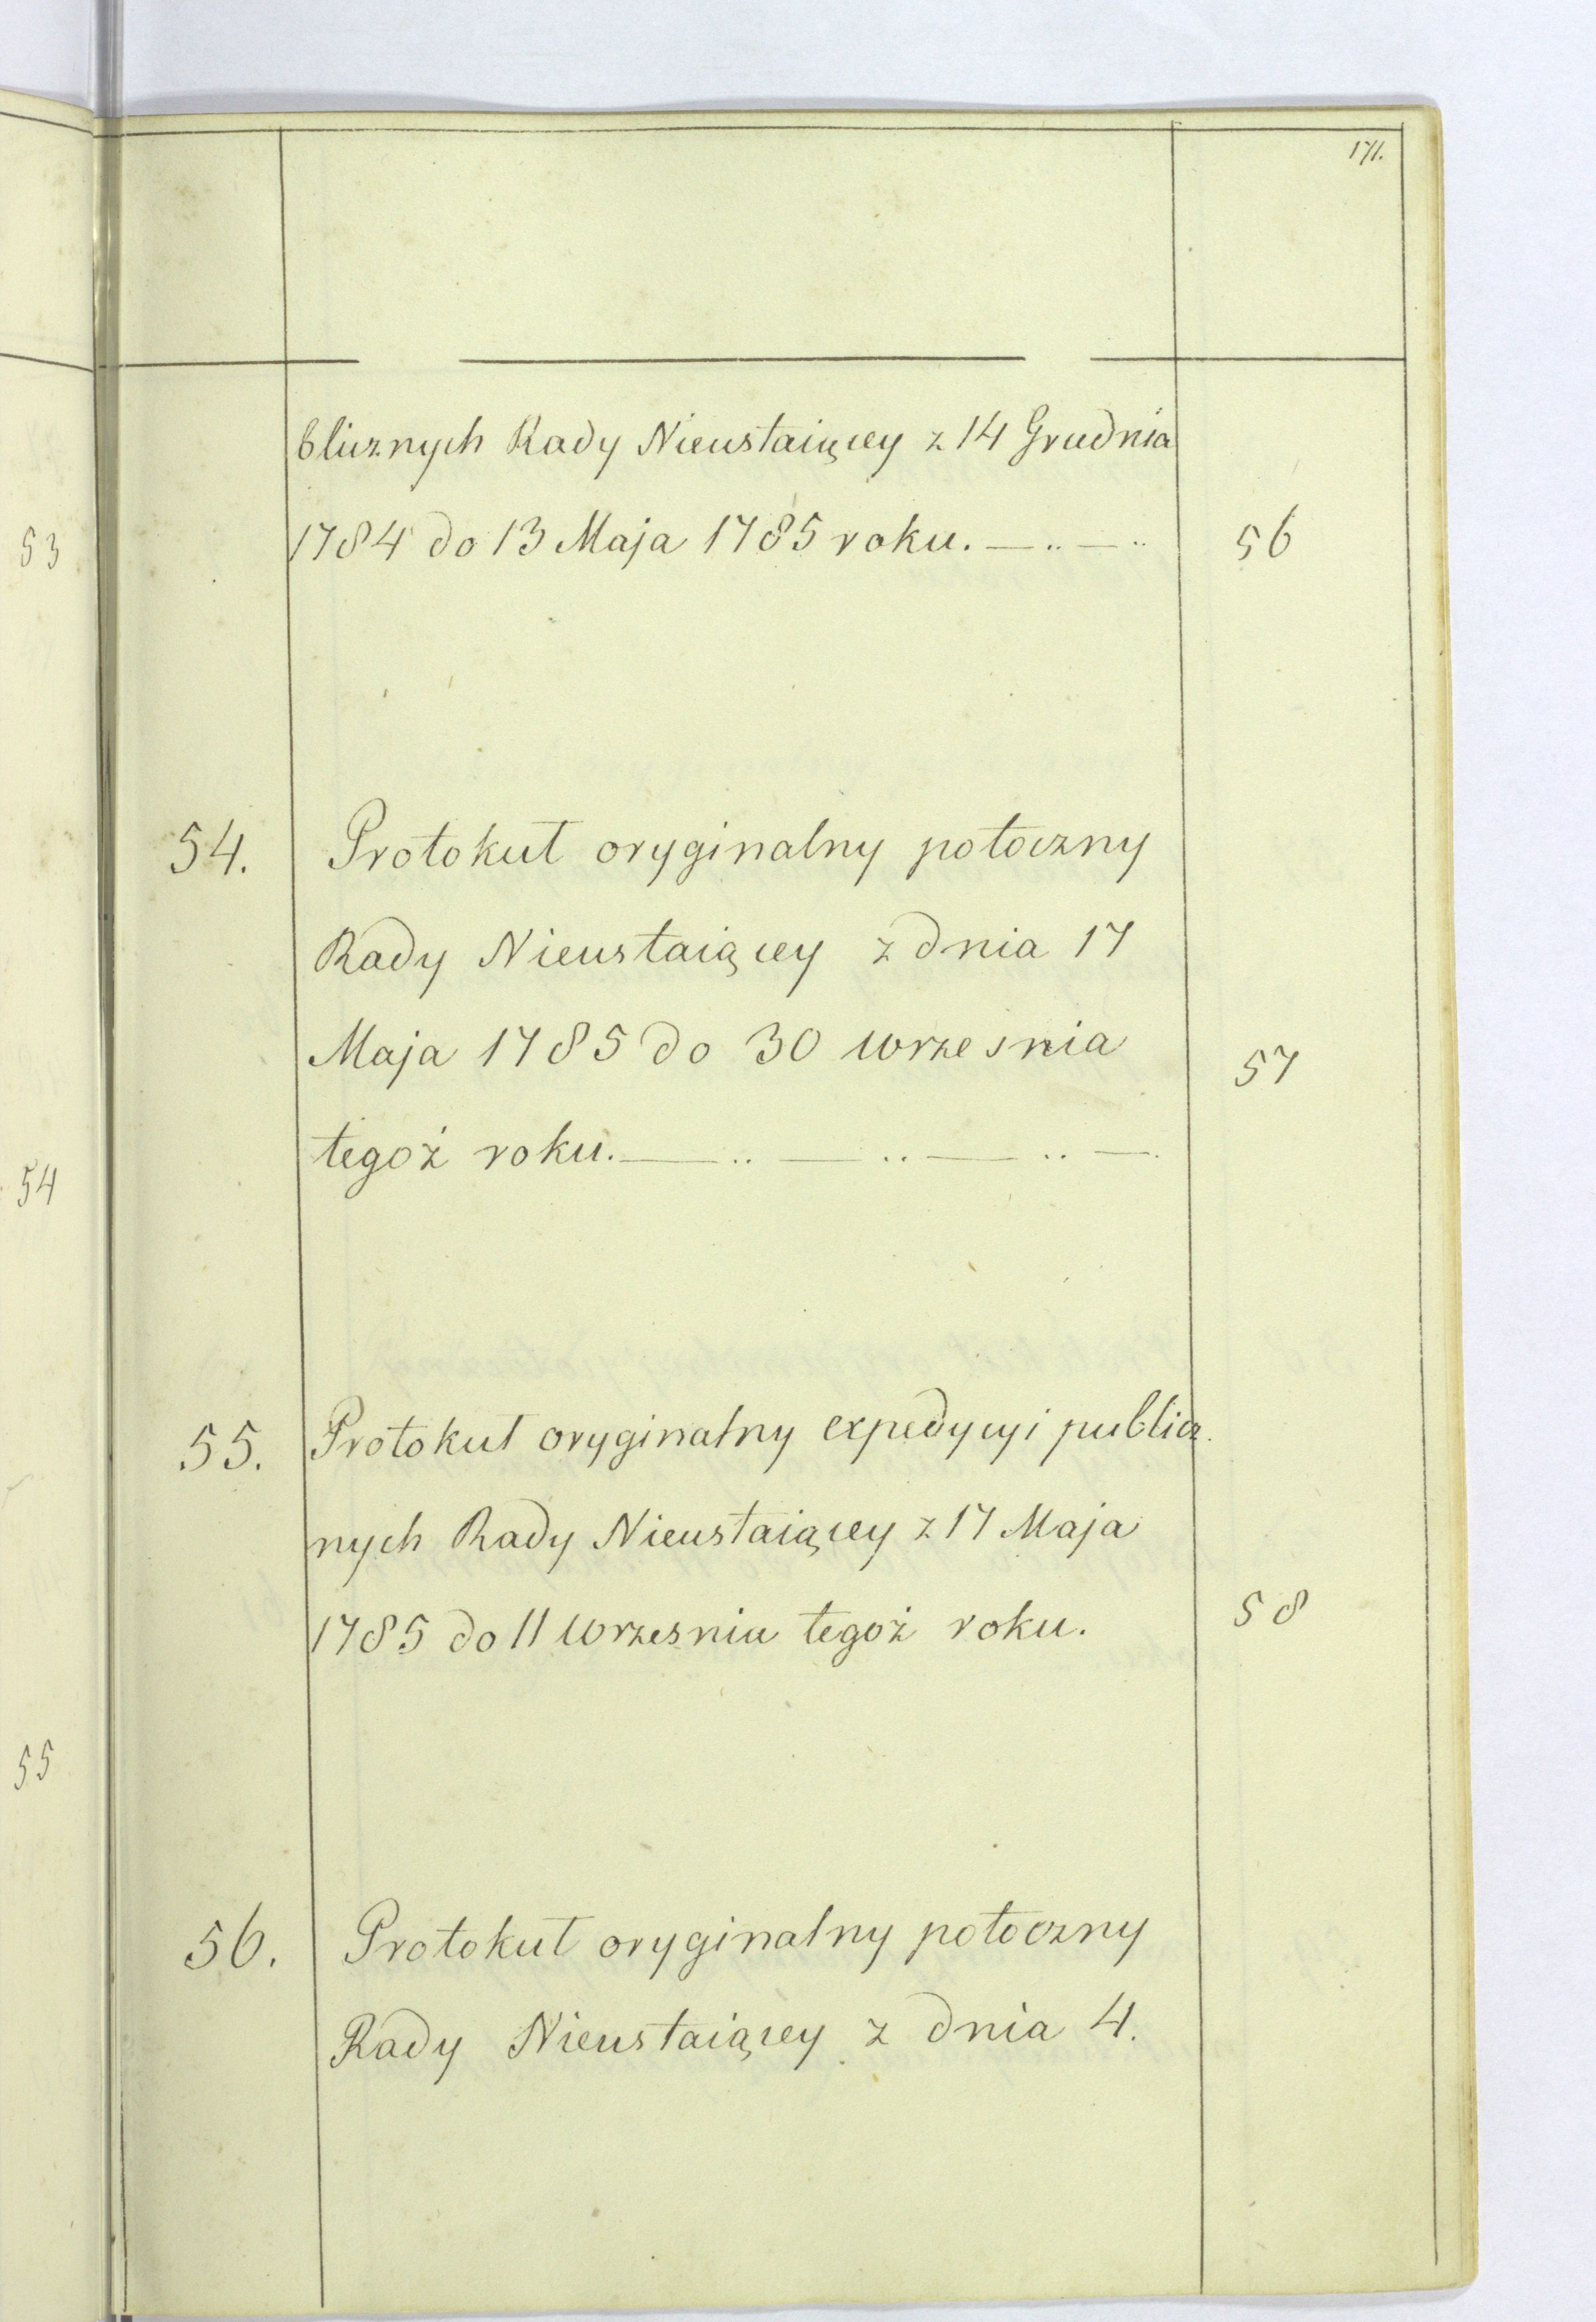 171.
53
54
55
blicznych Rady Nieustaiącey z 14 Grudnia
1784 do 13 Maja 1785 roku. — .. — ..
56
54. Protokuł oryginalny potoczny
Rady Nieustaiącey z dnia 17
Maja 1785 do 30 wrzesnia
57
tegoż roku. — .. — .. — .. —.
55. Protokuł oryginalny expedycyi publicz.
nych Rady Nieustaiącey z 17 Maja
1785 do 11 Wrzesnia tegoż roku.
58
56. Protokuł oryginalny potoczny
Rady Nieustaiącey z dnia 4.